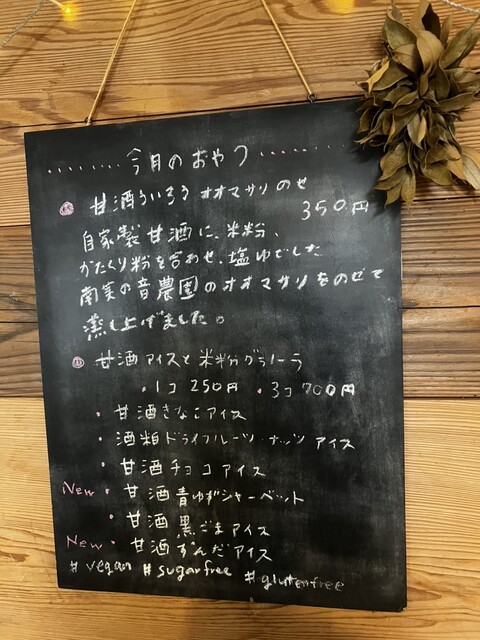 ‥‥‥今月のおやつ‥‥‥
甘酒ういろう オオマサリのせ
350円
自家製甘酒に、米粉、
かたくり粉を合わせ、塩ゆでした
南実の音農園のオオマサリをのせて
蒸し上げました。
甘酒アイスと米粉グラノーラ
・1コ 250円 ・3コ 700円
・甘酒きなこアイス
・酒粕ドライフルーツ・ナッツ アイス
・甘酒チョコアイス
New・甘酒青ゆずシャーベット
・甘酒黒ごまアイス
New・甘酒ずんだアイス
# vegan # sugarfree # glutenfree